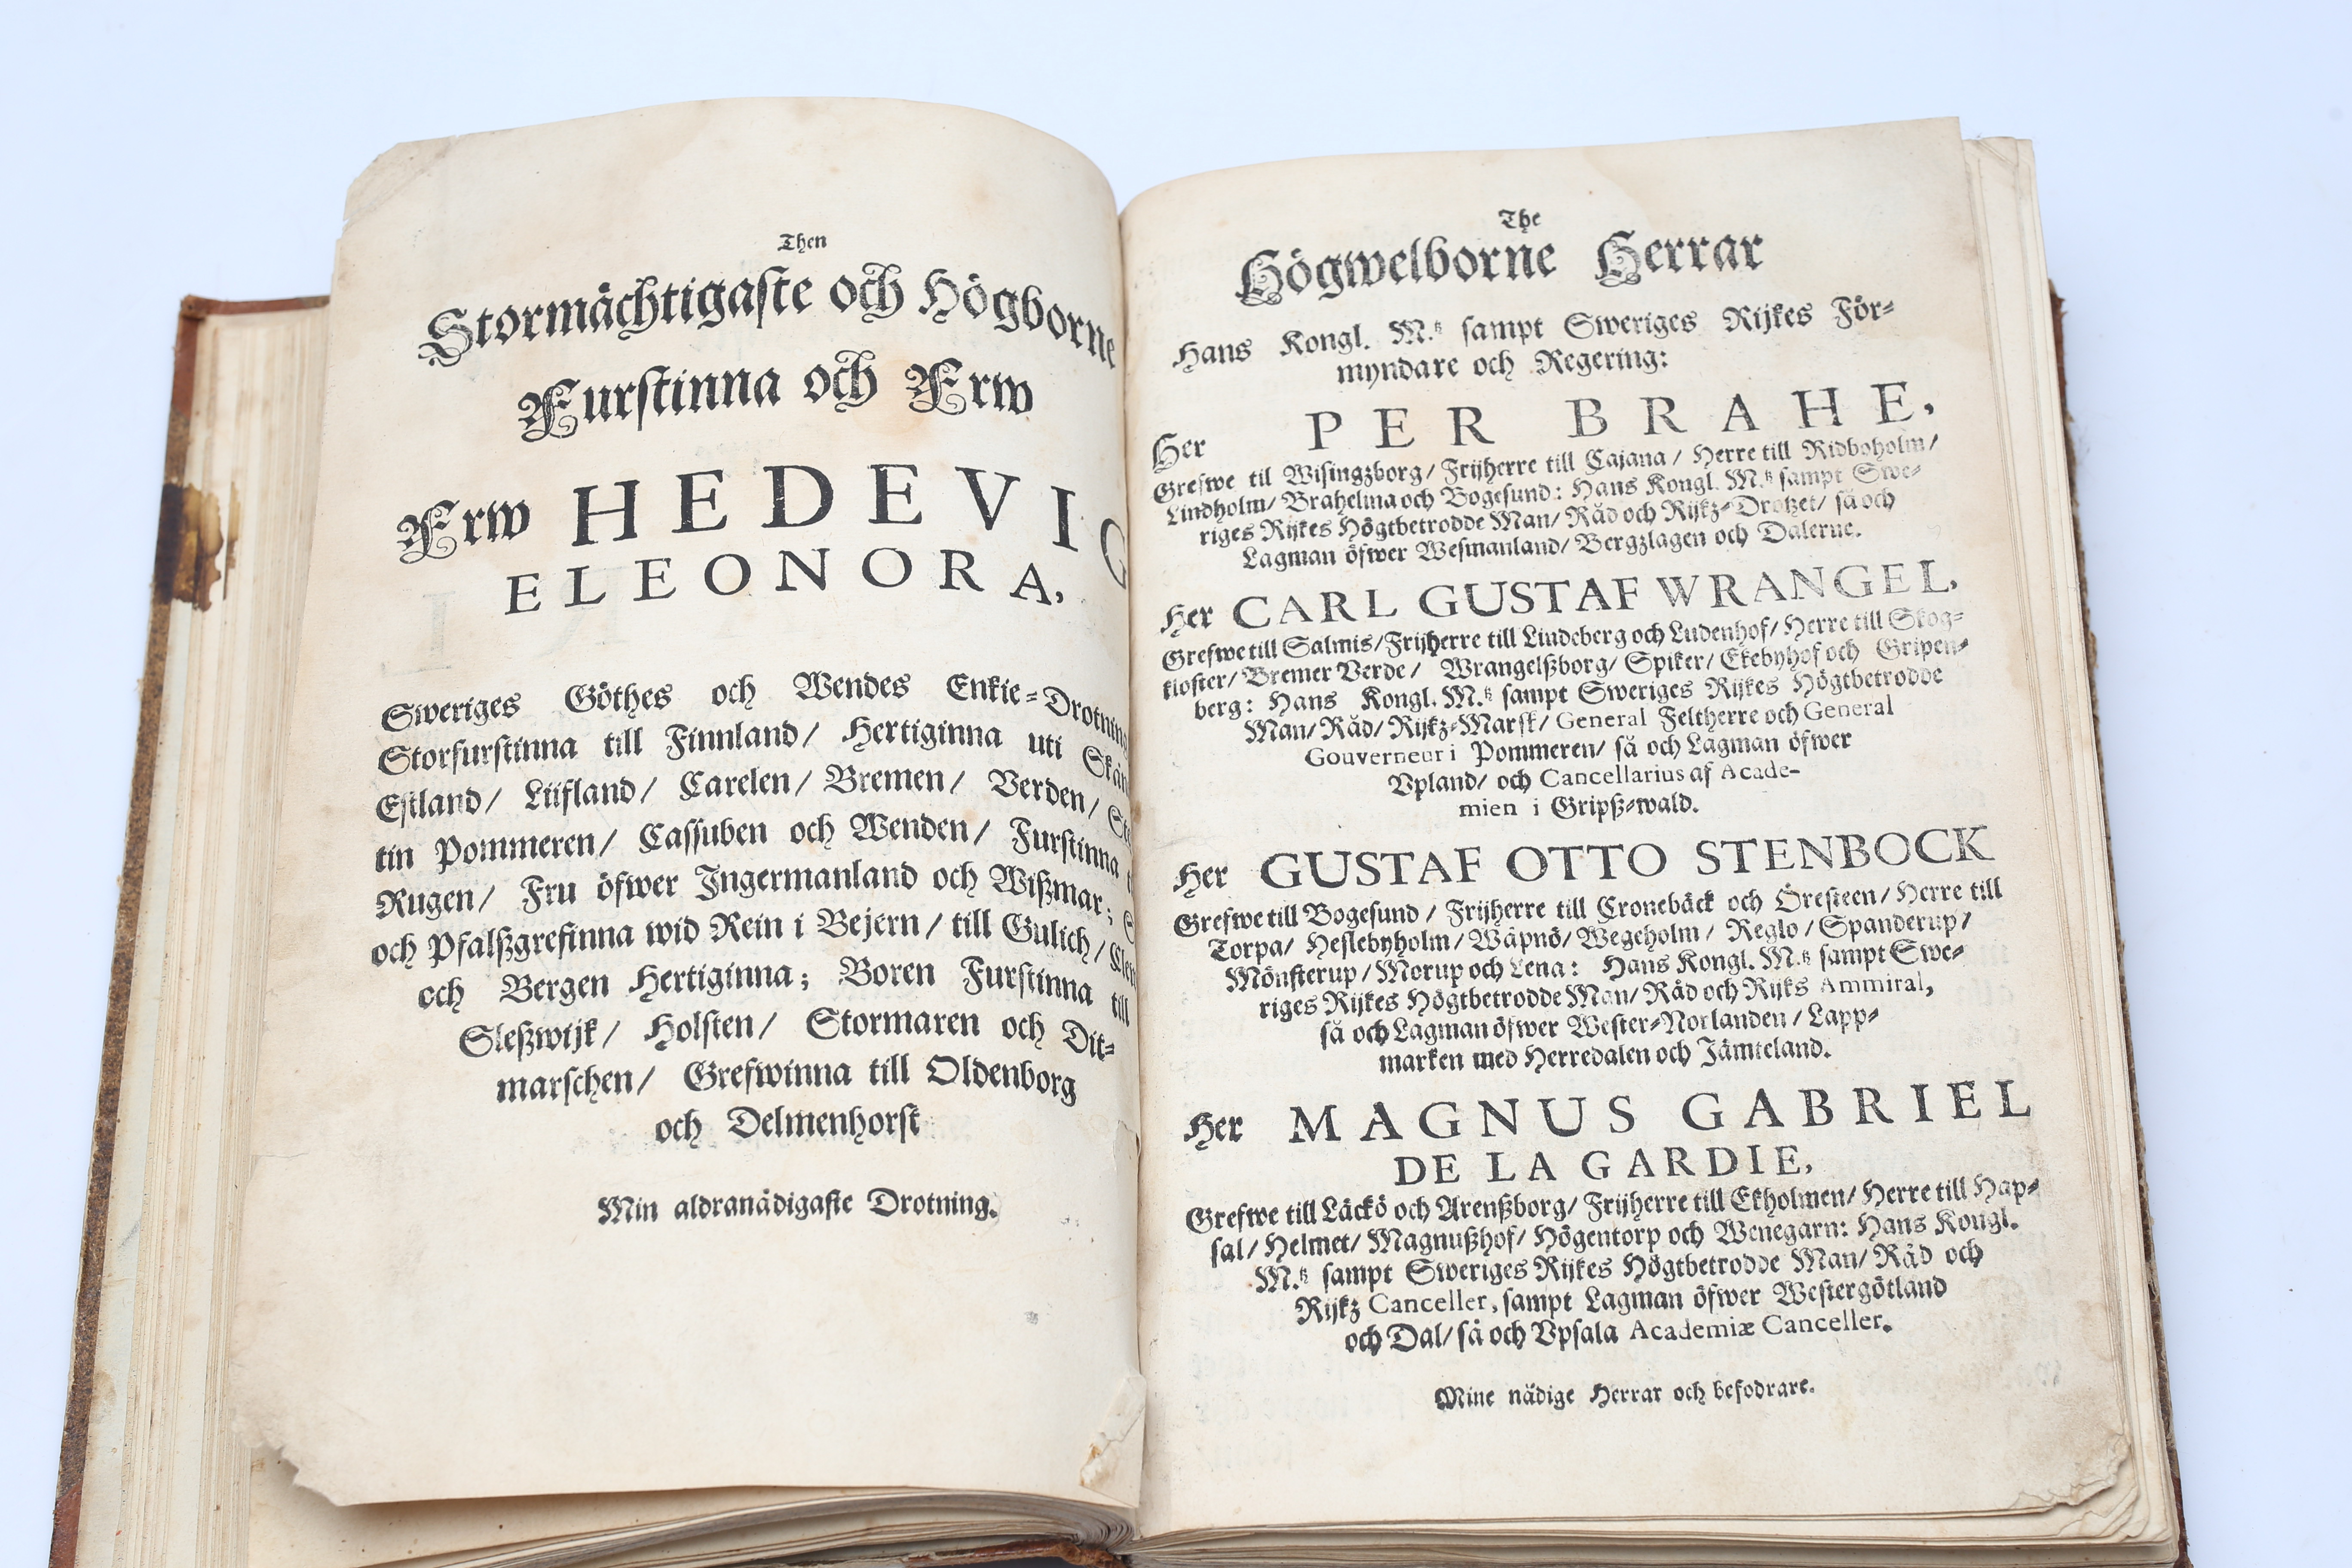 Then
Stormächtigaste och Högborne
Furstinna och Frw
Frw HEDEVIG
ELEONORA,
Sweriges Göthes och Wendes Enkie-Drotning
Storfurstinna till Finnland/ Hertiginna uti
Estland/ Lüfland/ Carelen/ Bremen/ Verden/
tin Pommeren/ Cassuben och Wenden/ Furstinna
Rugen/ Fru öfwer Ingermanland och Wißmar;
och Pfalßgrefinna wid Rein i Bejern/ till Gulich/
och Bergen Hertiginna; Boren Furstinna till
Sleßwijk/ Holsten/ Stormaren och Dit-
marschen/ Grefwinna till Oldenborg
och Delmenhorst
Min aldranådigaste Drotning.
The
Högwelborne Herrar
Hans Kongl. M.tz sampt Sweriges Rijkes För-
myndare och Regering:
Her PER BRAHE,
Grefwe til Wisingzborg/ Frijherre till Cajana/ Herre till Ridboholm/
Lindholm/ Brahelina och Bogesund: Hans Kongl. M.tz sampt Swe-
riges Rijkes Högtbetrodde Man/ Råd och Rijkz-Drotzet/ så och
Lagman öfwer Wesmanland/ Bergzlagen och Dalerne.
Her CARL GUSTAF WRANGEL,
Grefwe till Salmis/ Frijherre till Lindeberg och Ludenhof/ Herre till Skog-
kloster/ Bremer Verde/ Wrangelßborg/ Spiker/ Ekebyhof och Gripen-
berg: Hans Kongl. M.tz sampt Sweriges Rijkes Högtbetrodde
Man/ Råd/ Rijkz-Marsk/ General Feltherre och General
Gouverneur i Pommeren/ så och Lagman öfwer
Vpland/ och Cancellarius af Acade-
mien i Gripß-wald.
Her GUSTAF OTTO STENBOCK
Grefwe till Bogesund/ Frijherre till Cronebäck och Öresteen/ Herre till
Torpa/ Heslebyholm/ Wåpnö/ Wegeholm/ Reglo/ Spanderup/
Mönsterup/ Morup och Lena: Hans Kongl. M.tz sampt Swe-
riges Rijkes Högtbetrodde Man/ Råd och Rijks Ammiral,
så och Lagman öfwer Wester-Norlanden/ Lapp-
marken med Herredalen och Jämteland.
Her MAGNUS GABRIEL
DE LA GARDIE,
Grefwe till Läckö och Arenßborg/ Frijherre till Ekholmen/ Herre till Hap-
sal/ Helmet/ Magnußhof/ Högentorp och Wenegarn: Hans Kongl.
M.tz sampt Sweriges Rijkes Högtbetrodde Man/ Råd och
Rijkz Canceller, sampt Lagman öfwer Westergötland
och Dal/ så och Vpsala Academiæ Canceller.
Mine nådige Herrar och befodrare.